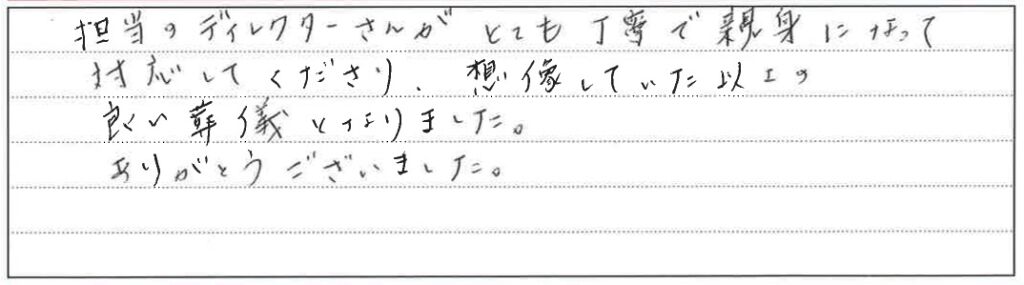 担当のディレクターさんがとても丁寧で親身になって
対応してくださり、想像していた以上の
良い葬儀となりました。
ありがとうございました。